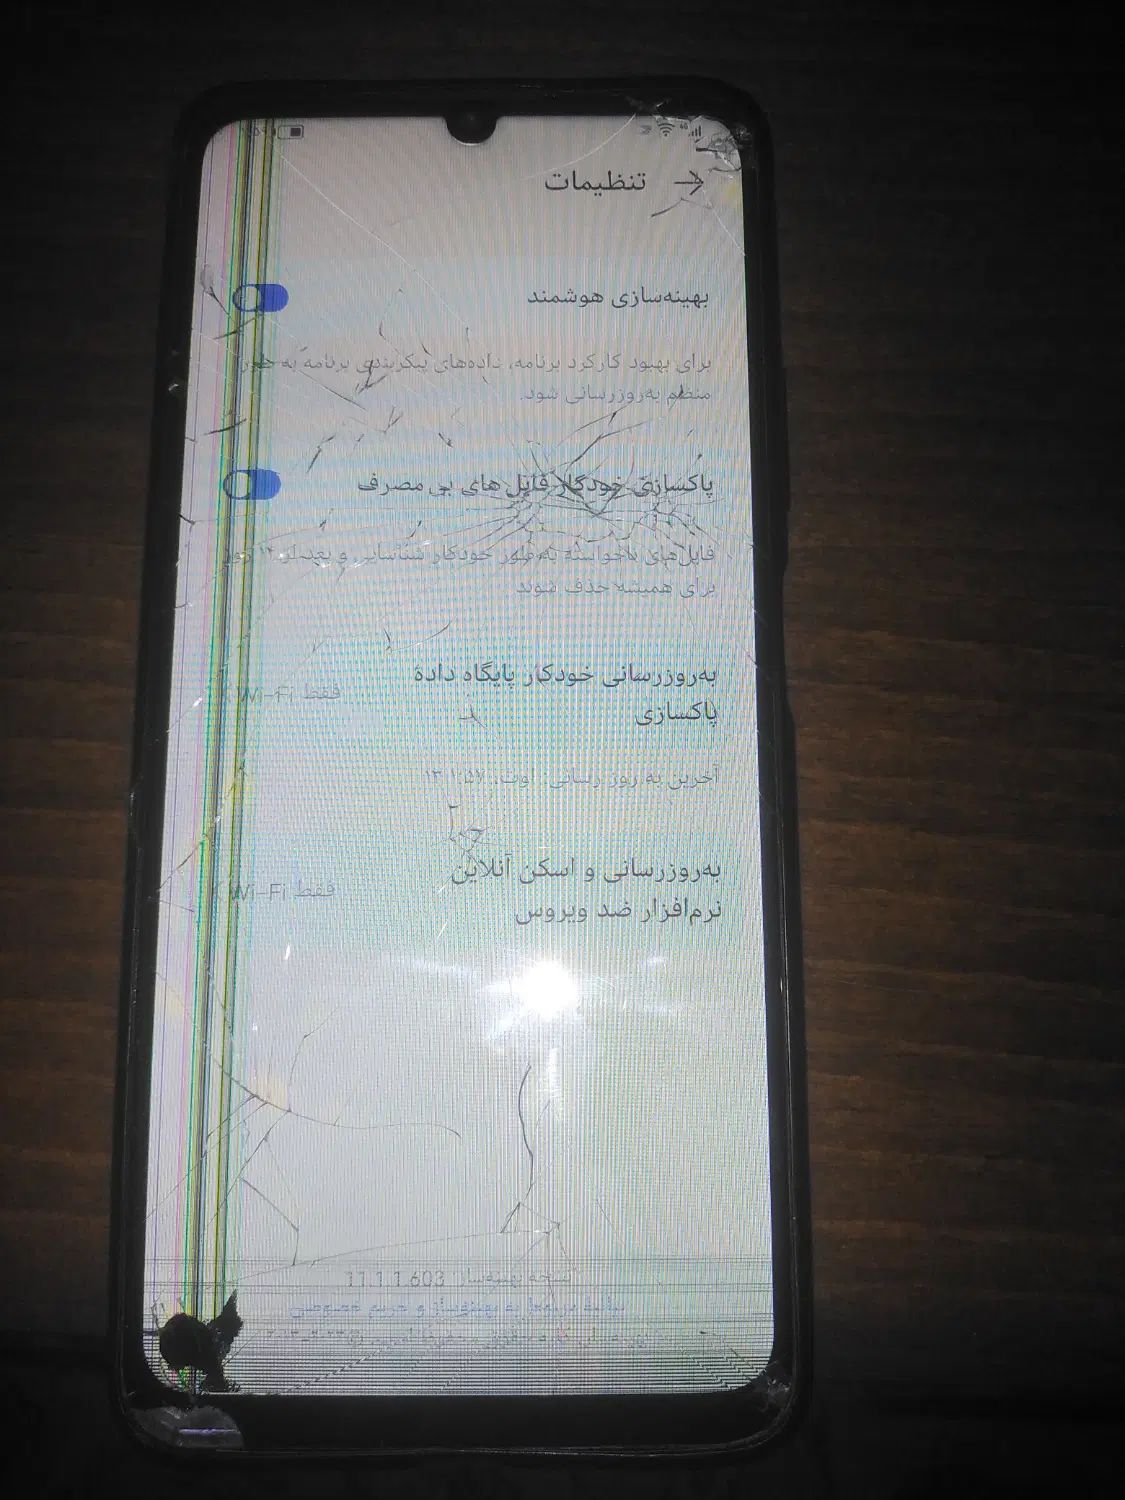 تنظیمات
بهینه‌سازی هوشمند
برای بهبود کارکرد برنامه، داده‌های پیکربندی برنامه به طور
منظم به‌روزرسانی شود.
پاکسازی خودکار فایل های بی مصرف
فایل‌های ناخواسته به طور خودکار شناسایی و بعد از ۱۴ روز
برای همیشه حذف شوند
به‌روزرسانی خودکار پایگاه داده
پاکسازی
فقط Wi-Fi
آخرین به روز رسانی: اوت،
به‌روزرسانی و اسکن آنلاین
نرم‌افزار ضد ویروس
فقط Wi-Fi
نسخه بهینه‌ساز: 11.1.1.603
بهینه‌ساز و حریم خصوصی